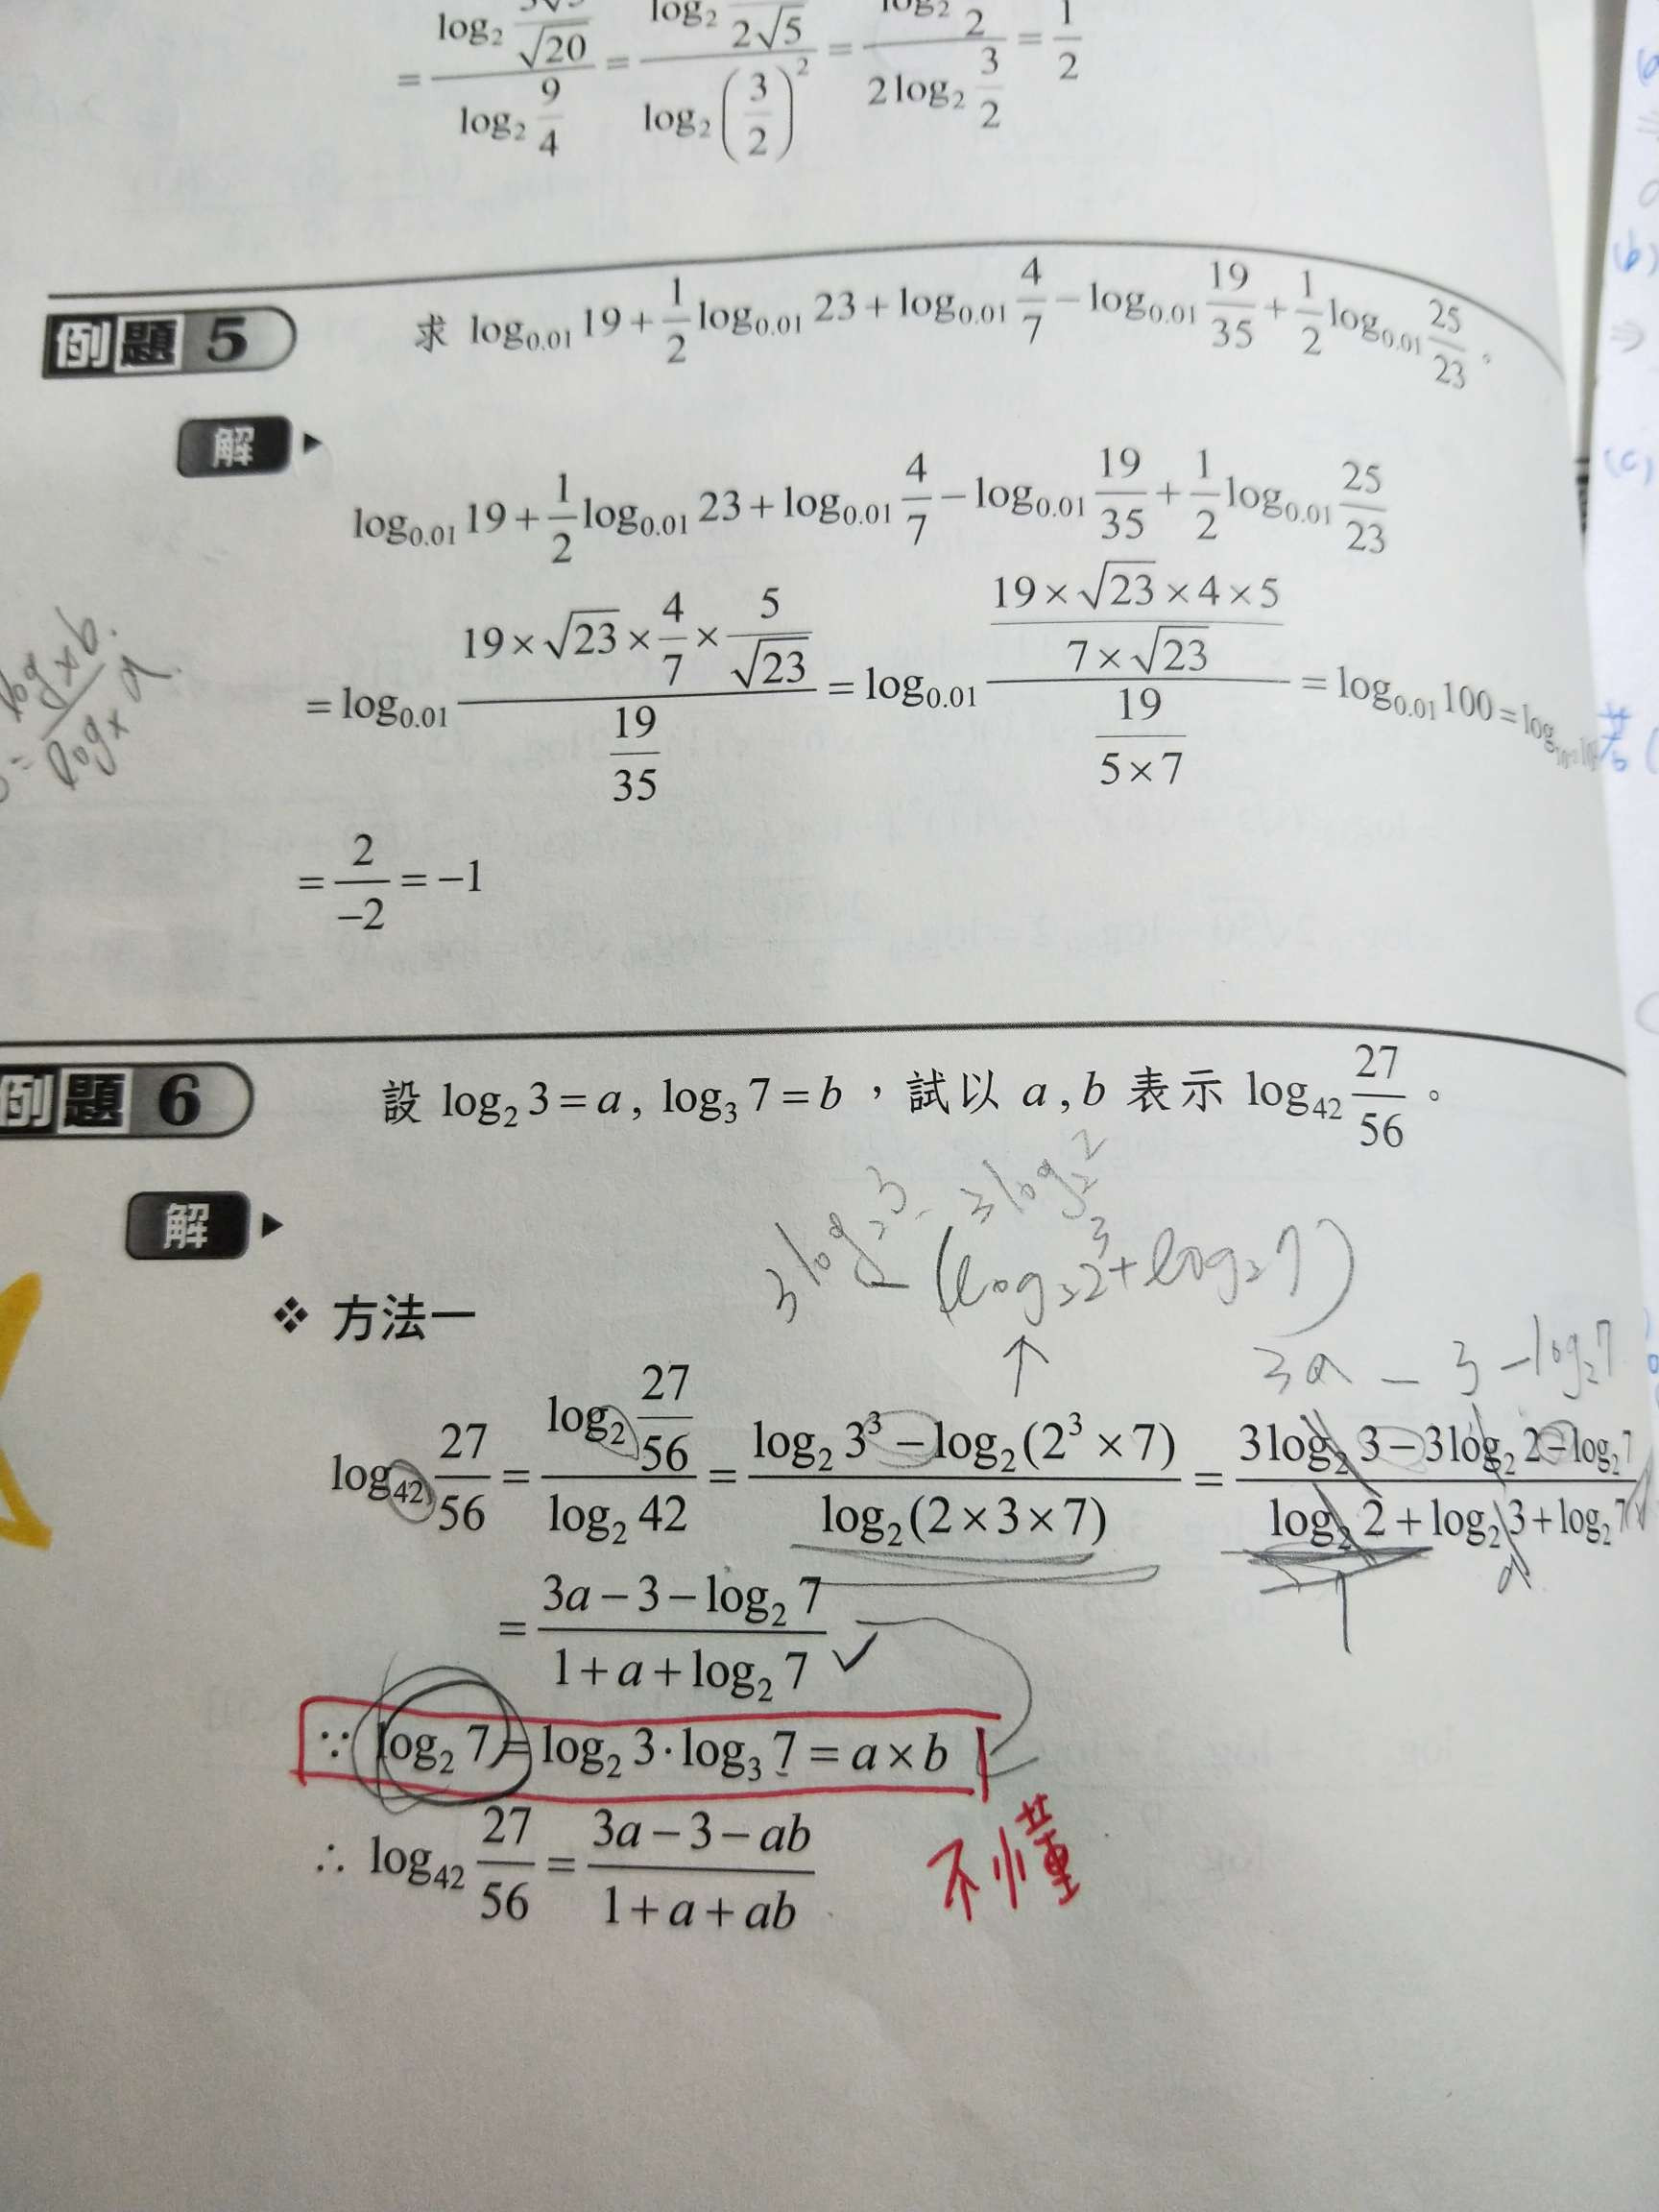 = log₂ √20 / log₂ 9/4 = log₂ 2√5 / log₂ (3/2)² = log₂ 2 / 2 log₂ 3/2 = 1/2
例題 5 求 log₀.₀₁ 19 + 1/2 log₀.₀₁ 23 + log₀.₀₁ 4/7 − log₀.₀₁ 19/35 + 1/2 log₀.₀₁ 25/23 。
解
log₀.₀₁ 19 + 1/2 log₀.₀₁ 23 + log₀.₀₁ 4/7 − log₀.₀₁ 19/35 + 1/2 log₀.₀₁ 25/23
= log₀.₀₁ (19 × √23 × 4/7 × 5/√23) / (19/35) = log₀.₀₁ ((19 × √23 × 4 × 5)/(7 × √23)) / (19/(5 × 7)) = log₀.₀₁ 100 = log
logₓ b
= logₓ a
= 2/−2 = −1
例題 6 設 log₂ 3 = a, log₃ 7 = b ，試以 a , b 表示 log₄₂ 27/56 。
解
3 log₂ 3 − (log₂ 2³ + log₂ 7)
3 log₂ 2
↑
❖ 方法一
3a − 3 − log₂ 7
log₄₂ 27/56 = log₂ 27/56 / log₂ 42 = (log₂ 3³ − log₂ (2³ × 7)) / log₂ (2 × 3 × 7) = (3 log₂ 3 − 3 log₂ 2 − log₂ 7) / (log₂ 2 + log₂ 3 + log₂ 7)
1 a
= (3a − 3 − log₂ 7) / (1 + a + log₂ 7) ✓
∵ log₂ 7 = log₂ 3 · log₃ 7 = a × b
∴ log₄₂ 27/56 = (3a − 3 − ab) / (1 + a + ab)
不懂
(b)
⇒
(c)